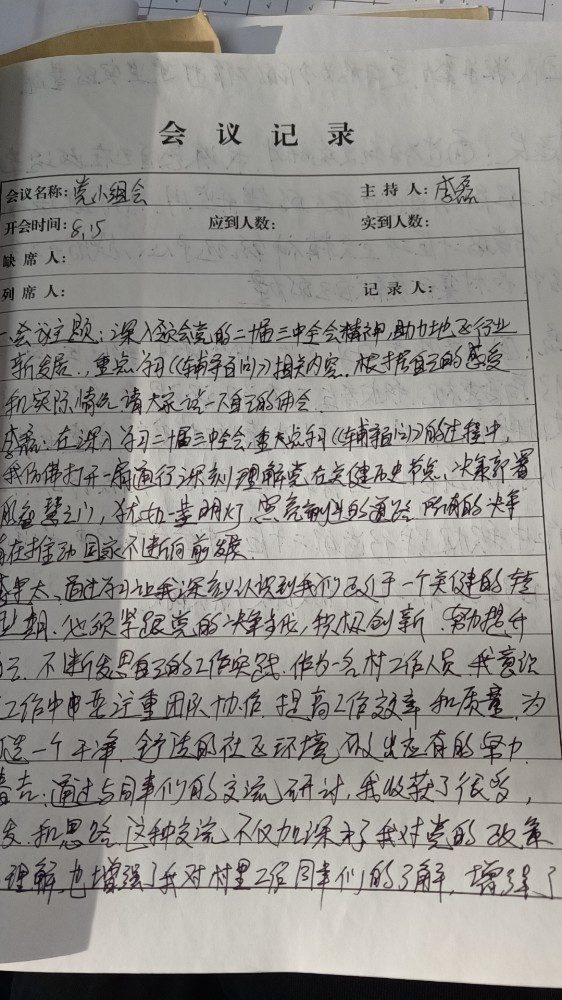 会议记录
会议名称：党小组会 主持人：李磊
开会时间：8.15 应到人数： 实到人数：
缺席人：
列席人： 记录人：
一.会议主题：深入领会党的二十届三中全会精神，助力地区行业
新发展.重点学习《辅导百问》相关内容.根据自己的感受
和实际情况请大家谈一下自己的体会.
李磊：在深入学习二十届三中全会,重点学习《辅导百问》的过程中,
我仿佛打开一扇通往深刻理解党在关键历史节点、决策部署
智慧之门,犹如一盏明灯,照亮前进的道路 所有的决策
在推动国家不断向前发展.
太、通过学习让我深刻认识到我们正处于一个关键的转
期.必须紧跟党的决策步伐,积极创新.努力提升
不断反思自己的工作实践.作为一名村工作人员 我意识
工作中更注重团队协作.提高工作效率和质量.为
造一个干净.舒适的社区环境做出应有的努力.
吉:通过与同事们的交流研讨,我收获了很多,
发.和思路.这种交流不仅加深了我对党的政策
理解,也增强了我对村里工作同事们的了解,增强了